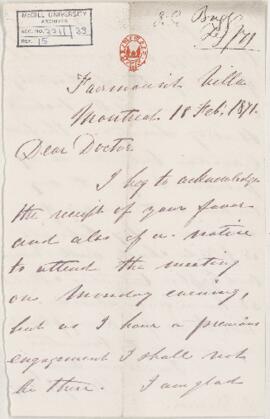 McGILL UNIVERSITY
ARCHIVES
ACC. NO. 2211 | 83
REF. 15
Bagg
Feb/71
Fairmount Villa
Montreal 18 Feb. 1871.
Dear Doctor
I beg to acknowledge
the receipt of your favor
and also of a notice
to attend the meeting
on Monday evening,
but as I have a previous
engagement I shall not
be there. I am glad